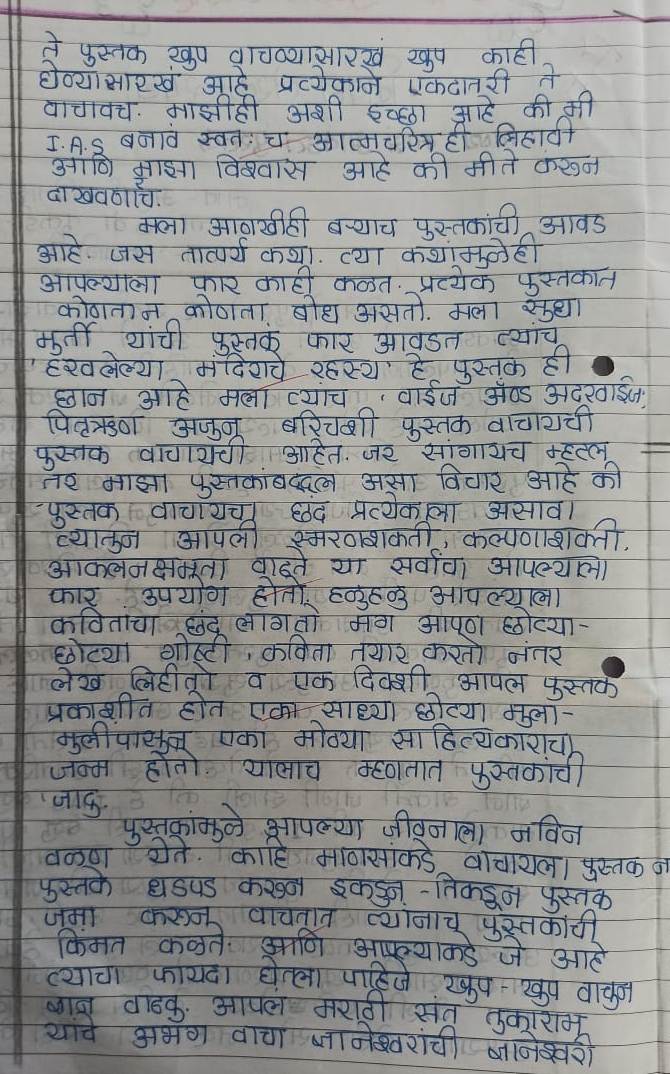 ते पुस्तक खुप वाचण्यासारखं खुप काही
घेण्यासारखं आहे प्रत्येकाने एकदातरी ते
वाचावच. माझीही अशी इच्छा आहे की मी
I.A.S बनावं स्वतः च आत्मचरित्र ही लिहावी
आणि माझा विश्वास आहे की मी ते करून
दाखवणारच.
मला आणखीही बऱ्याच पुस्तकांची आवड
आहे. जस तात्पर्य कथा. त्या कथांमुळेही
आपल्याला फार काही कळत. प्रत्येक पुस्तकात
कोणता न कोणता बोध असतो. मला सुधा
मुर्ती यांची पुस्तकं फार आवडत त्यांच
'हरवलेल्या मंदिराचे रहस्य' हे पुस्तक ही
छान आहे मला त्यांच 'वाईज अँण्ड अदरवाईज,
पितृऋण अजुन बरिचशी पुस्तक वाचायची
पुस्तक वाचायची आहेत. जर सांगायच म्हटल
तर माझा पुस्तकांबद्दल असा विचार आहे की
पुस्तक वाचायचा छंद प्रत्येकाला असावा
त्यातुन आपली स्मरणशक्ती, कल्पणाशक्ती,
आकलनक्षमता वाढते या सर्वांचा आपल्याला
फार उपयोग होतो. हळुहळु आपल्याला
कवितांचा छंद लागतो मग आपण छोट्या-
छोट्या गोष्टी, कविता तयार करतो नंतर
लेख लिहीतो व एक दिवशी आपल पुस्तक
प्रकाशीत होत एका साध्या छोट्या मुला-
मुलींपासुन एका मोठ्या साहित्यकाराचा
जन्म होतो. यालाच म्हणतात पुस्तकांची
'जादु.
पुस्तकांमुळे आपल्या जीवनाला नविन
वळण येते. काहि माणसांकडे वाचायला पुस्तक न
पुस्तके धडपड करून इकडुन -तिकडून पुस्तक
जमा करून वाचतात त्यांनाच पुस्तकांची
किंमत कळते. आणि आपल्याकडे जे आहे
त्याचा फायदा घेतला पाहिजे खुप-खुप वाचुन
ज्ञान वाढवु. आपल मराठी संत तुकाराम
यांचे अभंग वाचा ज्ञानेश्वरांची ज्ञानेश्वरी